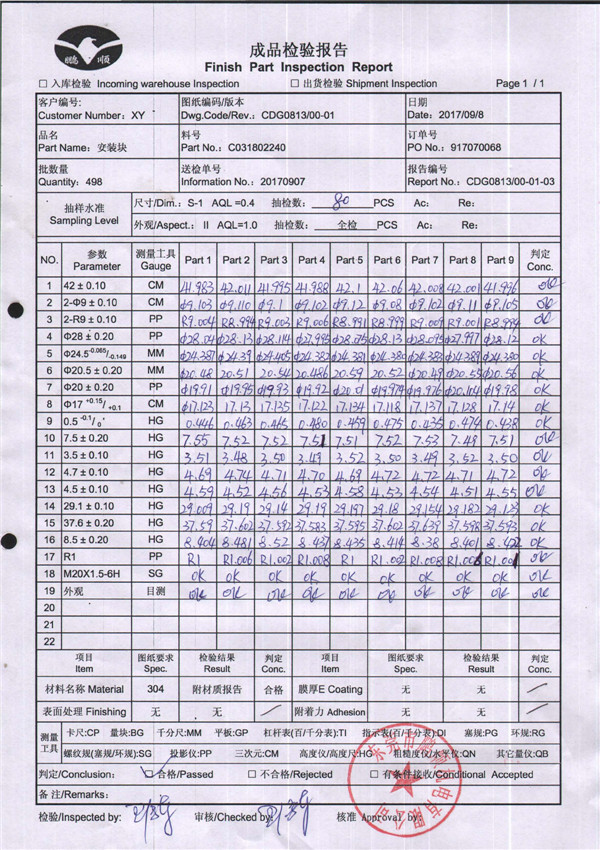 鹏 顺
成品检验报告
Finish Part Inspection Report
□ 入库检验 Incoming warehouse Inspection □ 出货检验 Shipment Inspection Page 1 / 1
客户编号: 图纸编码/版本 日期
Customer Number: XY Dwg.Code/Rev.: CDG0813/00-01 Date: 2017/09/8
品名 料号 订单号
Part Name: 安装块 Part No.: C031802240 PO No.: 917070068
批数量 送检单号 报告编号
Quantity: 498 Information No.: 20170907 Report No.: CDG0813/00-01-03
抽样水准 尺寸/Dim.: S-1 AQL =0.4 抽检数: 80 PCS Ac: Re:
Sampling Level 外观/Aspect.: II AQL=1.0 抽检数: 全检 PCS Ac: Re:
NO. 参数 测量工具 Part 1 Part 2 Part 3 Part 4 Part 5 Part 6 Part 7 Part 8 Part 9 判定
Parameter Gauge Conc.
1 42 ± 0.10 CM 41.983 42.011 41.995 41.988 42.1 42.06 42.008 42.001 41.996 OK
2 2-Φ9 ± 0.10 CM Φ9.103 Φ9.110 Φ9.1 Φ9.102 Φ9.12 Φ9.08 Φ9.102 Φ9.11 Φ9.105 OK
3 2-R9 ± 0.10 PP R9.004 R8.994 R9.003 R9.006 R8.991 R8.999 R9.009 R9.001 R8.994 OK
4 Φ28 ± 0.20 PP Φ28.04 Φ28.13 Φ28.114 Φ27.995 Φ28.075 Φ28.13 Φ28.095 Φ27.997 Φ28.12 OK
5 Φ24.5 -0.065/-0.149 MM Φ24.387 Φ24.39 Φ24.405 Φ24.382 Φ24.381 Φ24.380 Φ24.383 Φ24.389 Φ24.380 OK
6 Φ20.5 ± 0.20 MM Φ20.48 20.51 20.54 20.486 20.59 20.52 Φ20.49 Φ20.55 Φ20.56 OK
7 Φ20 ± 0.20 PP Φ19.91 Φ19.95 Φ19.93 Φ19.92 Φ20.01 Φ19.979 Φ19.976 Φ20.104 Φ19.98 OK
8 Φ17 +0.15/+0.1 CM Φ17.123 17.13 17.135 17.122 17.134 17.118 17.137 17.128 17.14 OK
9 0.5 -0.1/0 HG 0.446 0.463 0.465 0.480 0.459 0.475 0.435 0.474 0.438 OK
10 7.5 ± 0.20 HG 7.55 7.52 7.52 7.51 7.51 7.52 7.53 7.48 7.51 OK
11 3.5 ± 0.10 HG 3.51 3.48 3.50 3.49 3.52 3.50 3.49 3.52 3.50 OK
12 4.7 ± 0.10 HG 4.69 4.74 4.71 4.70 4.69 4.72 4.72 4.71 4.72 OK
13 4.5 ± 0.10 HG 4.59 4.52 4.56 4.53 4.58 4.53 4.54 4.51 4.55 OK
14 29.1 ± 0.10 HG 29.009 29.19 29.14 29.19 29.197 29.18 29.154 29.182 29.123 OK
15 37.6 ± 0.20 HG 37.59 37.602 37.592 37.583 37.595 37.602 37.639 37.598 37.593 OK
16 8.5 ± 0.20 HG 8.404 8.481 8.52 8.437 8.435 8.414 8.38 8.401 8.422 OK
17 R1 PP R1 R1.006 R1.002 R1.008 R1 R1.002 R1.008 R1.006 R1.001 OK
18 M20X1.5-6H SG OK OK OK OK OK OK OK OK OK OK
19 外观 目测 OK OK OK OK OK OK OK OK OK OK
20
21
22
项目 图纸要求 检验结果 判定 项目 图纸要求 检验结果 判定
Item Spec. Result Conc. Item Spec. Result Conc.
材料名称 Material 304 附材质报告 合格 膜厚E Coating 无 无
表面处理 Finishing 无 无 附着力 Adhesion 无 无
测量工具 卡尺:CP 量块:BG 千分尺:MM 平板:GP 杠杆表(百/千分表):TI 指示表(百/千分表):DI 塞规:PG 环规:RG
螺纹规(塞规/环规):SG 投影仪:PP 三次元:CM 高度仪/高度尺:HG 粗糙度仪/水平仪:QN 其它量仪:QB
判定/Conclusion: ☑ 合格/Passed □ 不合格/Rejected □ 有条件接收/Conditional Accepted
备 注/Remarks:
检验/Inspected by: 审核/Checked by: 核准 Approval by: